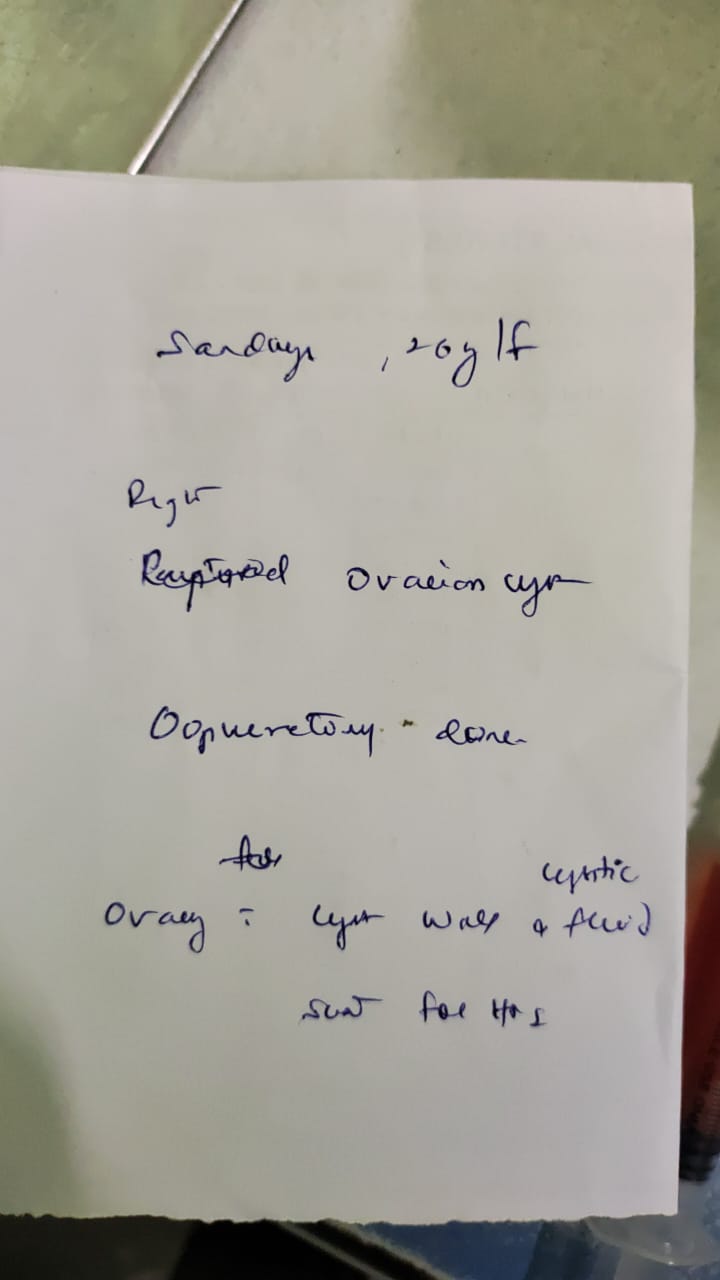 Sandays , 20y/F
Right
Ruptured Ovarian cyst
Oophorectomy - done
cystic
Ovary c̄ cyst wall & fluid
sent for HPE